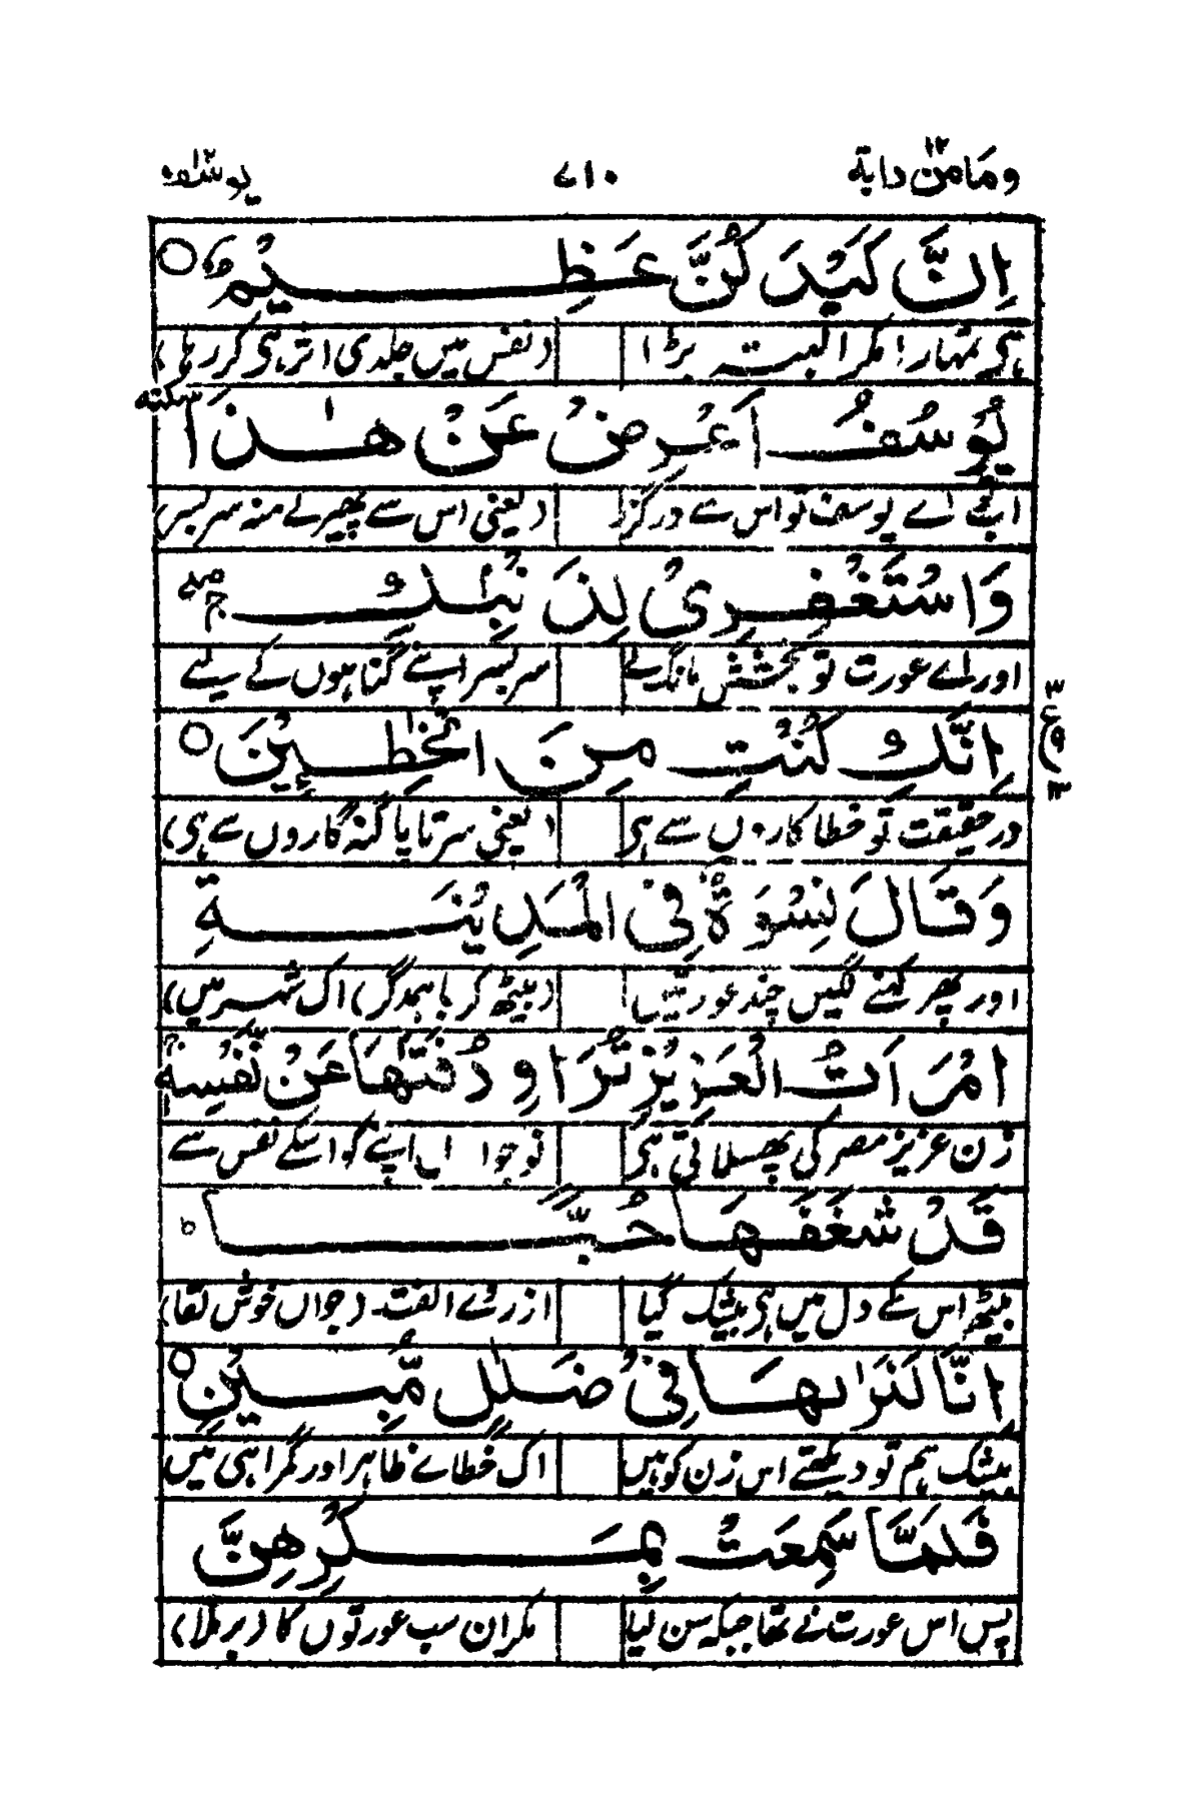 ومامن دابة ۱۲ ۷۱۰ یوسف ۱۲
اِنَّ كَيْدَ كُنَّ عَظِيْمٌ ○
ہے تمہارا مکر البتہ بڑا (نفس میں جلدی اثر ہی کر رہا)
يُوْسُفُ اَعْرِضْ عَنْ هٰذَا سکتہ
اب اے یوسف تو اس سے درگزر (یعنی اس سے پھیر لے منہ سر بسر
وَاسْتَغْفِرِيْ لِذَنْۢبِكِ ۚ صلے
اور اے عورت تو بخشش مانگ لے سر بسر اپنے گناہوں کے لیے
اِنَّكِ كُنْتِ مِنَ الْخٰطِـِٕيْنَ ○
۳ ع ۳
درحقیقت تو خطا کاروں سے ہی (یعنی سرتاپا گنہ گاروں سے ہی)
وَقَالَ نِسْوَةٌ فِي الْمَدِيْنَةِ
اور پھر کہنے لگیں چند عورتیں (بیٹھ کر باہمدگر) اک شہر میں)
امْرَاَتُ الْعَزِيْزِ تُرَاوِدُ فَتٰىهَا عَنْ نَّفْسِهٖ ۚ
زن عزیز مصر کی پھسلاتی ہی نوجواں اپنے کو اسکے نفس سے
قَدْ شَغَفَهَا حُبًّا ؕ
بیٹھ اس کے دل میں ہی بیشک گیا ازرہے الفت (جواں خوش لقا)
اِنَّا لَنَرٰىهَا فِيْ ضَلٰلٍ مُّبِيْنٍ ○
بیشک ہم تو دیکھتے اس زن کو ہیں اک خطاے ظاہر اور گمراہی میں
فَلَمَّا سَمِعَتْ بِمَكْرِهِنَّ
پس اس عورت نے تھا جبکہ سن لیا مکر ان سب عورتوں کا (برملا)